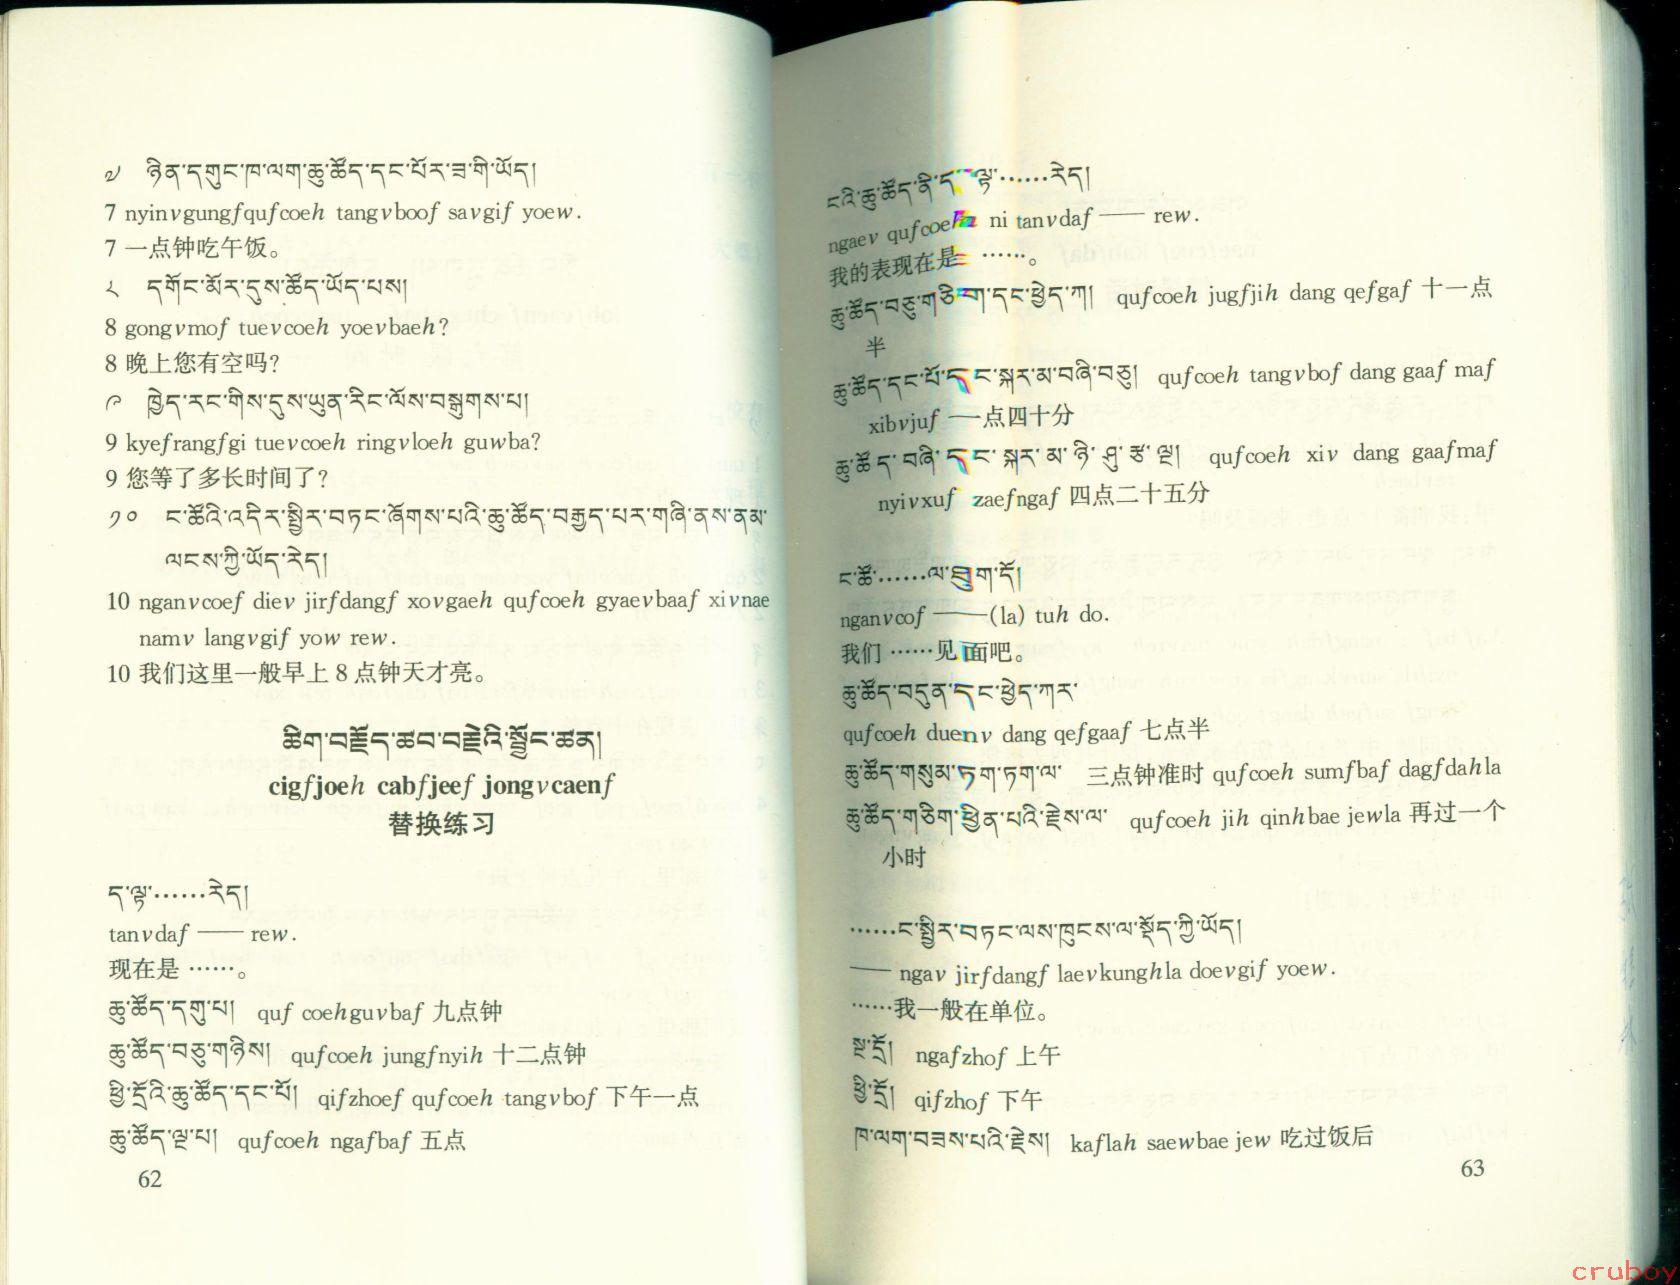 ༧ ཉིན་དགུང་ཁ་ལག་ཆུ་ཚོད་དང་པོར་ཟ་གི་ཡོད།
7 nyinvgungfqufcoeh tangvboof savgif yoew.
7 一点钟吃午饭。
༨ དགོང་མོར་དུས་ཚོད་ཡོད་པས།
8 gongvmof tuevcoeh yoevbaeh?
8 晚上您有空吗?
༩ ཁྱེད་རང་གིས་དུས་ཡུན་རིང་ལོས་བསྒུགས་པ།
9 kyefrangfgi tuevcoeh ringvloeh guwba?
9 您等了多长时间了?
༡༠ ང་ཚོའི་འདིར་སྤྱིར་བཏང་ཞོགས་པའི་ཆུ་ཚོད་བརྒྱད་པར་གཞི་ནས་ནམ་
ལངས་ཀྱི་ཡོད་རེད།
10 nganvcoef diev jirfdangf xovgaeh qufcoeh gyaevbaaf xivnae
namv langvgif yow rew.
10 我们这里一般早上 8 点钟天才亮。
ཚིག་བརྗོད་ཚབ་བརྗེའི་སྦྱོང་ཚན།
cigfjoeh cabfjeef jongvcaenf
替换练习
ད་ལྟ་……རེད།
tanvdaf —— rew.
现在是 ……。
ཆུ་ཚོད་དགུ་པ། quf coehguvbaf 九点钟
ཆུ་ཚོད་བཅུ་གཉིས། qufcoeh jungfnyih 十二点钟
ཕྱི་དྲོའི་ཆུ་ཚོད་དང་པོ། qifzhoef qufcoeh tangvbof 下午一点
ཆུ་ཚོད་ལྔ་པ། qufcoeh ngafbaf 五点
62
ངའི་ཆུ་ཚོད་ནི་ད་ལྟ་……རེད།
ngaev qufcoeh ni tanvdaf —— rew.
我的表现在是 ……。
ཆུ་ཚོད་བཅུ་གཅིག་དང་ཕྱེད་ཀ། qufcoeh jugfjih dang qefgaf 十一点
半
ཆུ་ཚོད་དང་པོ་དང་སྐར་མ་བཞི་བཅུ། qufcoeh tangvbof dang gaaf maf
xibvjuf 一点四十分
ཆུ་ཚོད་བཞི་དང་སྐར་མ་ཉི་ཤུ་རྩ་ལྔ། qufcoeh xiv dang gaafmaf
nyivxuf zaefngaf 四点二十五分
ང་ཚོ་……ལ་ཐུག་དོ།
nganvcof ——(la) tuh do.
我们 ……见面吧。
ཆུ་ཚོད་བདུན་དང་ཕྱེད་ཀར་
qufcoeh duenv dang qefgaaf 七点半
ཆུ་ཚོད་གསུམ་ཏག་ཏག་ལ་ 三点钟准时 qufcoeh sumfbaf dagfdahla
ཆུ་ཚོད་གཅིག་ཕྱིན་པའི་རྗེས་ལ་ qufcoeh jih qinhbae jewla 再过一个
小时
……ང་སྤྱིར་བཏང་ལས་ཁུངས་ལ་སྡོད་ཀྱི་ཡོད།
—— ngav jirfdangf laevkunghla doevgif yoew.
……我一般在单位。
སྔ་དྲོ། ngafzhof 上午
ཕྱི་དྲོ། qifzhof 下午
ཁ་ལག་བཟས་པའི་རྗེས། kaflah saewbae jew 吃过饭后
63
cruboy